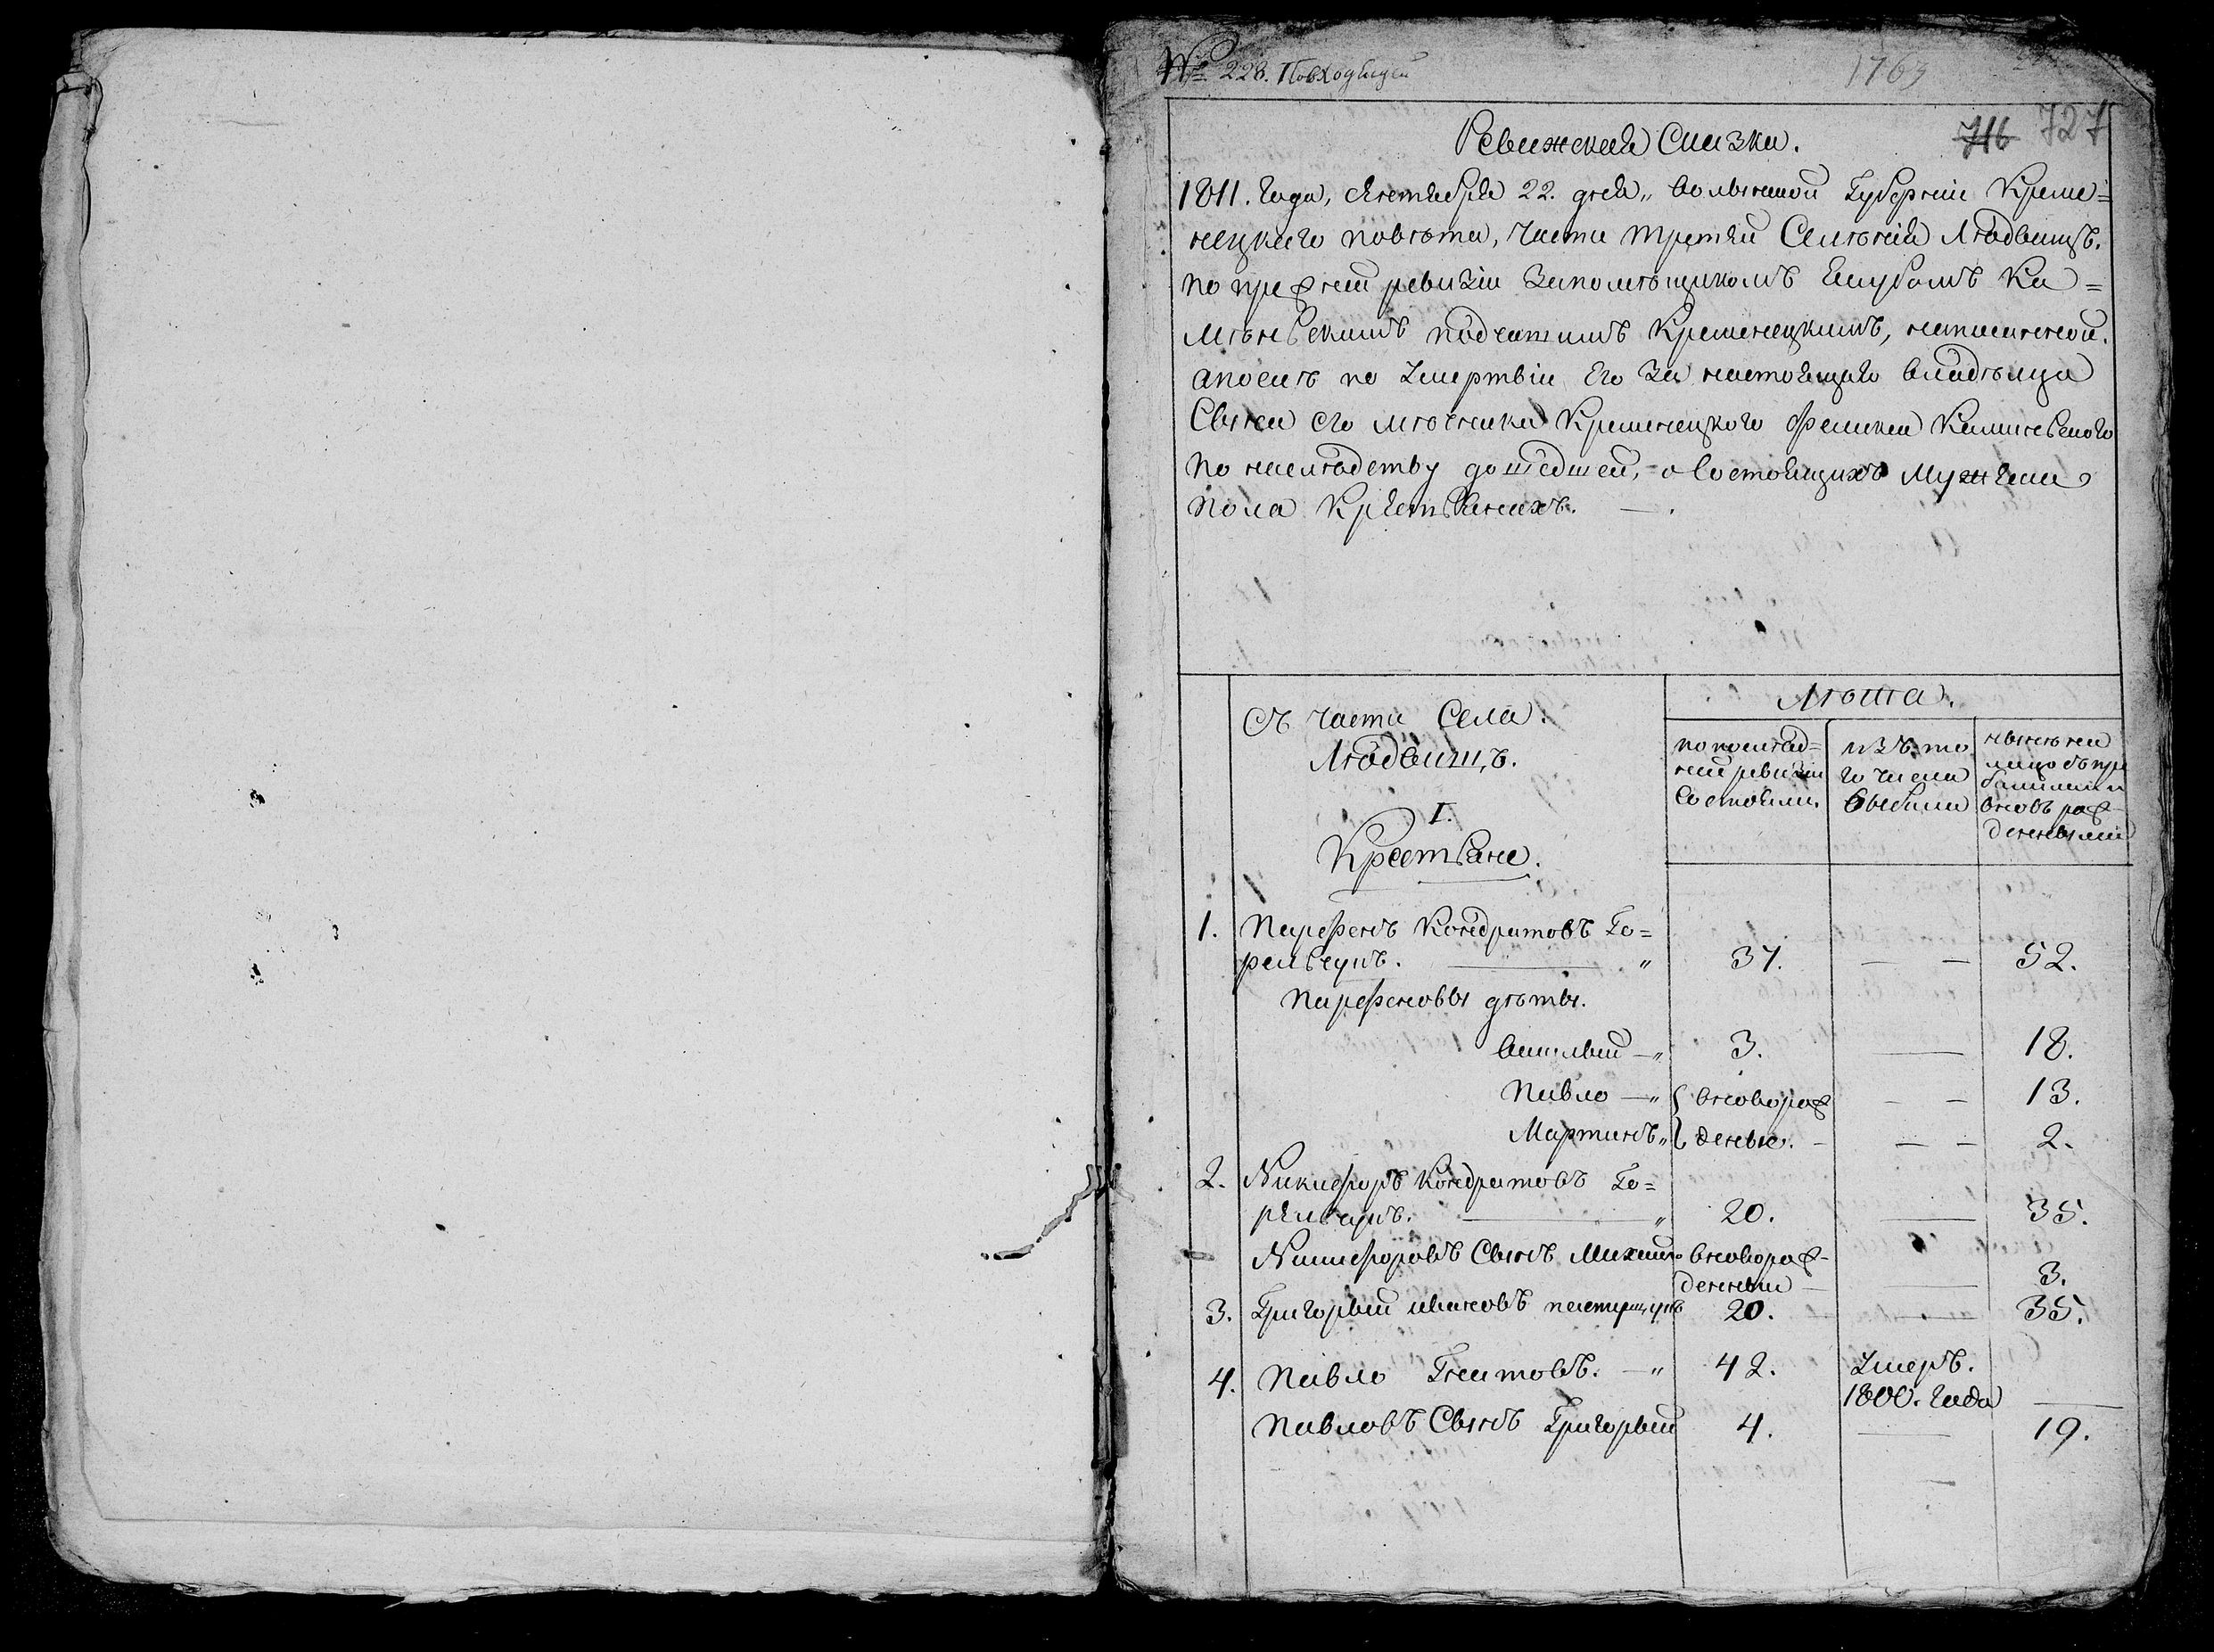 № 228. Повходящей
1763
716 727
Ревижская Сказка.
1811. года, октября 22. дня, волынской Губернии Креме=
нецкаго повѣта, Части третяй Селѣния Людвищъ.
по прежней ревизіи Заполнѣщикомъ Якубомъ Ка=
мѣньскимъ подчашимъ Кременецкимъ, написанной.
апослѣ по Умертвіи Его За настоящаго владѣльца
Сына его Кременецкого Феликса Каминьского
по наслѣдству дошедшей, о Состоящихъ Мужеска
пола Крѣстьянахъ.
Съ части Села.
Людвищъ.
Лѣта.
по послѣд=
ней ревизіи
Состояли.
изъ то
го числа
выбыли
нынѣ на
лицо съ при
былыми и
вновь рож
денными
I.
Крестьяне.
1. Парфенъ Кондратовъ Го=
рельчукъ. 37. — — 52.
Парфеновы дѣты.
Василый — 3. — 18.
Павло — вновьрож — — 13.
Мартинъ деные. — — 2.
2. Никифоръ Кондратовъ Го=
рельчукъ. 20. — 35.
Никифоровъ Сынъ Михайло вновьрож-
денный — — 3.
3. Григорый Ивановъ 20. — 35.
4. Павло Гнатовъ. — 42. Умеръ.
1800. года —
Павловъ Сынъ Григорый 4. — 19.